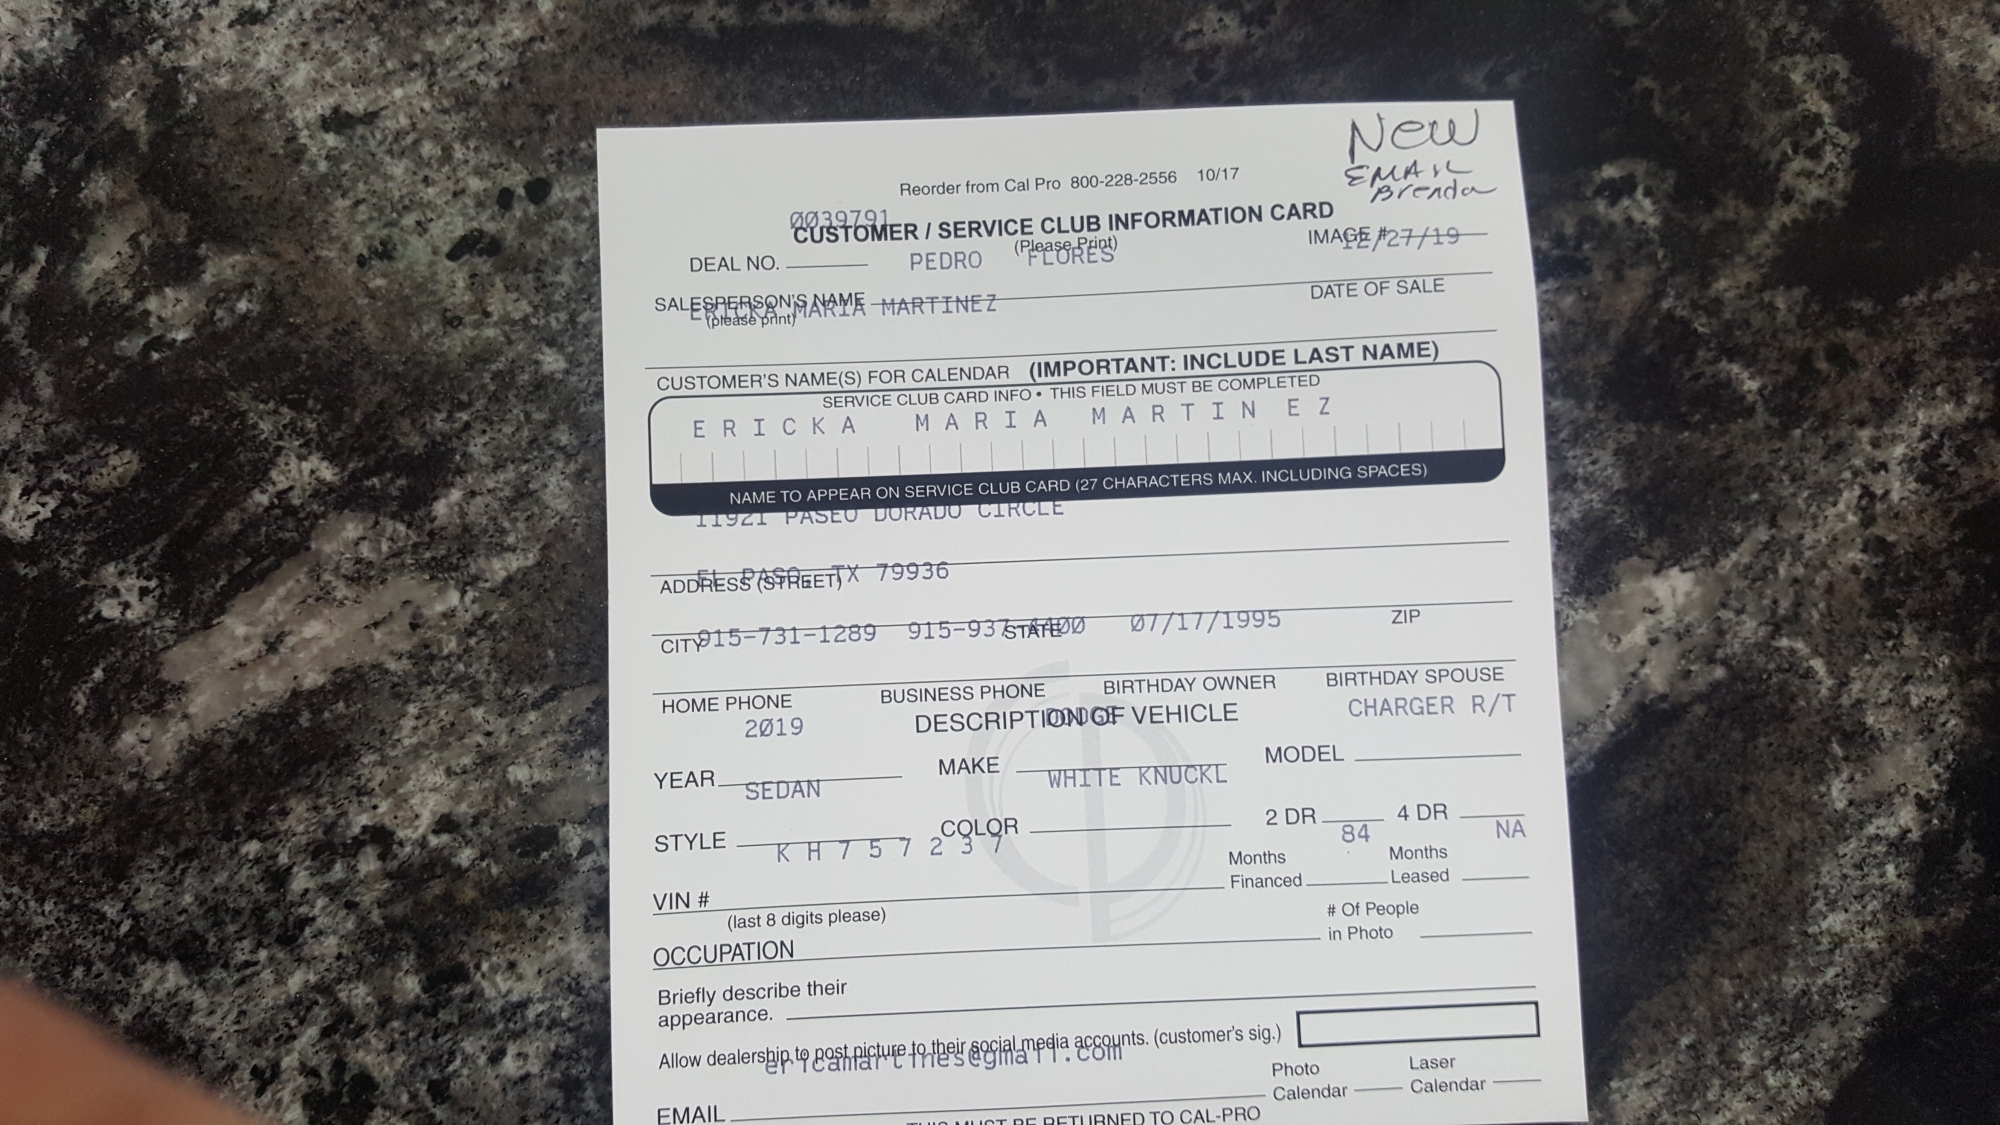 New
EMAIL
Brenda
Reorder from Cal Pro 800-228-2556 10/17
0039791
CUSTOMER / SERVICE CLUB INFORMATION CARD
(Please Print)
IMAGE # 12/27/19
DEAL NO. PEDRO FLORES
SALESPERSON'S NAME
(please print)
DATE OF SALE
ERICKA MARIA MARTINEZ
CUSTOMER'S NAME(S) FOR CALENDAR (IMPORTANT: INCLUDE LAST NAME)
SERVICE CLUB CARD INFO • THIS FIELD MUST BE COMPLETED
ERICKA MARIA MARTINEZ
NAME TO APPEAR ON SERVICE CLUB CARD (27 CHARACTERS MAX. INCLUDING SPACES)
11921 PASEO DORADO CIRCLE
EL PASO, TX 79936
ADDRESS (STREET)
915-731-1289 915-937-4400 07/17/1995
CITY STATE ZIP
HOME PHONE BUSINESS PHONE BIRTHDAY OWNER BIRTHDAY SPOUSE
2019 DODGE CHARGER R/T
DESCRIPTION OF VEHICLE
YEAR MAKE MODEL
SEDAN WHITE KNUCKL
STYLE COLOR 2 DR 4 DR
KH757237 84 NA
VIN # Months Financed Months Leased
(last 8 digits please)
OCCUPATION # Of People in Photo
Briefly describe their
appearance.
Allow dealership to post picture to their social media accounts. (customer's sig.)
ericamartines@gmail.com
EMAIL Photo Calendar Laser Calendar
THIS MUST BE RETURNED TO CAL-PRO